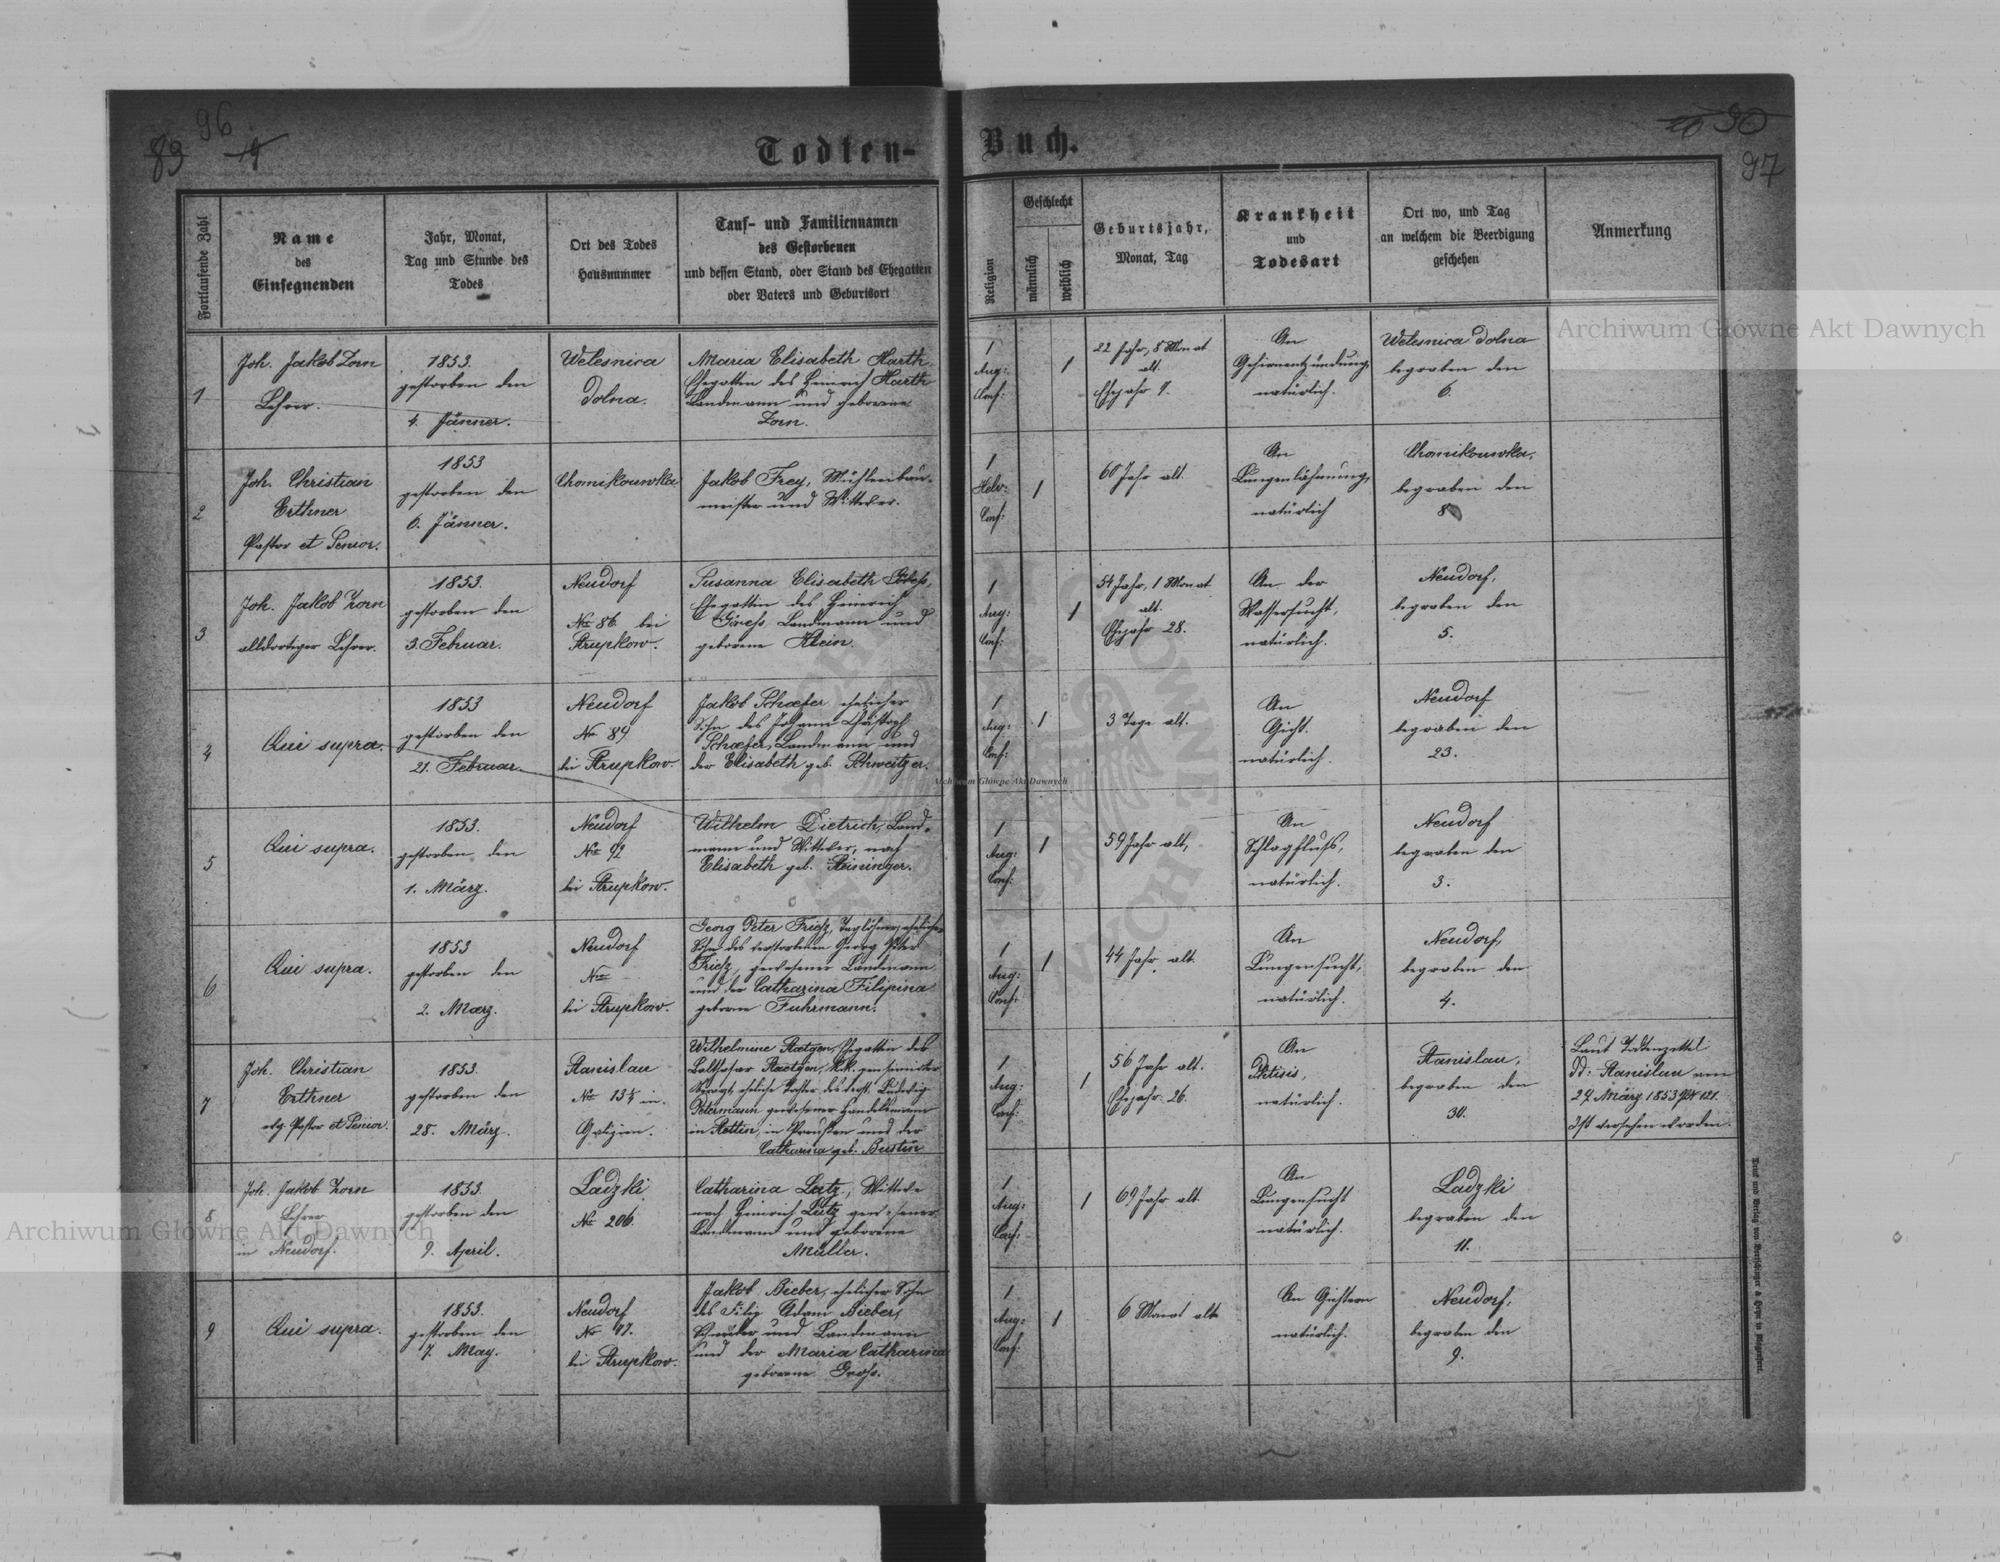 83
96
Todten-
Buch.
30
97
Fortlaufende Zahl
Name
des
Einsegnenden
Jahr, Monat,
Tag und Stunde des
Todes
Ort des Todes
Hausnummer
Tauf- und Familiennamen
des Gestorbenen
und dessen Stand, oder Stand des Ehegatten
oder Vaters und Geburtsort
Religion
Geschlecht
männlich
weiblich
Geburtsjahr,
Monat, Tag
Krankheit
und
Todesart
Ort wo, und Tag
an welchem die Beerdigung
geschehen
Anmerkung
1
Joh. Jakob Zorn
Lehrer.
1853.
gestorben den
4. Jänner.
Welesnica
dolna.
Maria Elisabeth Harth
Ehegattin des Heinrich Harth
Landmann und geborene
Zorn.
1
Aug:
Conf:
1
22 Jahr, 8 Monat
alt.
Ehejahr
An
Gehirnentzündung,
natürlich.
Welesnica dolna
begraben den
6.
2
Joh. Christian
Erthner
Pastor et Senior.
1853
gestorben den
6. Jänner.
Chomikouwka
Jakob Frey, Mühlenbau-
meister und Wittwer.
1
Helv:
Conf:
1
60 Jahr alt.
An
Lungenlähmung,
natürlich
Chomikouwka,
begraben den
8
3
Joh. Jakob Zorn
alldortiger Lehrer.
1853.
gestorben den
3. Februar.
Neudorf
No 86 bei
Strupkow.
Susanna Elisabeth
Ehegattin des Heinrich
Landmann und
geborene Klein.
1
Aug:
Conf:
1
54 Jahr, 1 Monat
alt.
Ehejahr 28.
An der
Wassersucht,
natürlich.
Neudorf,
begraben den
5.
4
Qui supra.
1853
gestorben den
21. Februar.
Neudorf
No 84
bei Strupkow.
Jakob Schaefer ehelicher
Sohn des Johann Christoph
Schaefer, Landmann und
der Elisabeth geb. Schweitzer.
1
Aug:
Conf:
1
3 Tage alt.
An
Gicht.
natürlich.
Neudorf
begraben den
23.
5
Qui supra.
1853.
gestorben den
1. März.
Neudorf
No 92
bei Strupkow.
Wilhelm Dietrich, Land-
mann und Wittwer, nach
Elisabeth geb. Reininger.
1
Aug:
Conf:
1
59 Jahr alt,
An
Schlagfluß,
natürlich.
Neudorf
begraben den
3.
6
Qui supra.
1853
gestorben den
2. März.
Neudorf
No
bei Strupkow.
Georg Peter Friesz, Taglöhner, ehelicher
Sohn des verstorbenen Georg Peter
Friesz, gewesener Landmann
und der Catharina Filipina
geborene Fuhrmann.
1
Aug:
Conf:
1
44 Jahr alt.
An
Lungensucht,
natürlich.
Neudorf,
begraben den
4.
7
Joh. Christian
Erthner
evg. Pastor et Senior.
1853.
gestorben den
28. März.
Stanislau
No 13½ in.
Galizien.
Wilhelmine Raetgen, Ehegattin des
Balthasar Raetgen, K.K. pensionirter
eheliche Tochter des verst. Ludwig
Petermann gewesener Handelsmann
in Stettin, in Preußen und der
Catharina geb. Bustin
1
Aug:
Conf:
1
56 Jahr alt.
Ehejahr 26.
An
Phtisis,
natürlich.
Stanislau,
begraben den
30.
Laut Todtenzettel
dt: Stanislau am
29. März 1853 No 121.
Ist versehen worden.
8
Joh. Jakob Zorn
Lehrer
in Neudorf.
1853.
gestorben den
9. April.
Ladzki
No 206.
Catharina Lutz, Wittwe
nach Heinrich Lutz gewesener
Landmann und geborene
Müller.
1
Aug:
Conf:
1
69 Jahr alt.
An
Lungensucht
natürlich.
Ladzki
begraben den
11.
9
Qui supra.
1853.
gestorben den
7. May.
Neudorf
No 47.
bei Strupkow.
Jakob Bieber, ehelicher Sohn
des Filip Adam Bieber,
Schneider und Landmann
und der Maria Catharina
geborene Gross.
1
Aug:
Conf:
1
6 Monat alt
An Gichtern
natürlich.
Neudorf,
begraben den
9.
Archiwum Główne Akt Dawnych
Archiwum Główne Akt Dawnych
Archiwum Główne Akt Dawnych